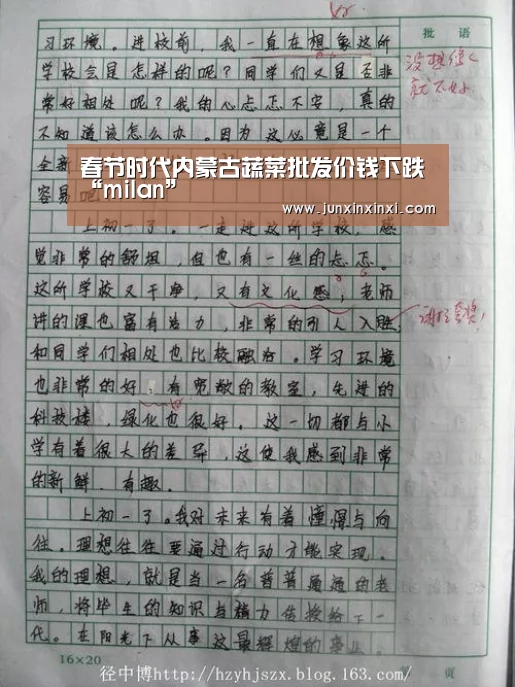 批 语
习环境。进校前，我一直在想象这所
学校会是怎样的呢？同学们又是否非
常好相处呢？我的心忐忑不安，真的
不知道该怎么办。因为这必竟是一个
全新
春节时代内蒙古蔬菜批发价钱下跌
“milan”
www.junxinxinxi.com
容易吧
上初一了。一走进这所学校，感
觉非常的
但也有一丝的忐忑。
这所学校又干净，又有文化感，老师
讲的课也富有活力，非常的引人入胜，
和同学们相处也比较融洽。学习环境
也非常的好，有宽敞的教室，先进的
科技楼，绿化也很好。这一切都与小
学有着很大的差异，这使我感到非常
的新鲜、有趣。
上初一了。我对未来有着憧憬与向
往。理想往往要通过行动才能实现。
我的理想，就是当一名普普通通的老
师，将毕生的知识与精力传授给下一
代。在阳光下从事这最辉煌的事业。
16×20
页
径中博http://hzyhjszx.blog.163.com/